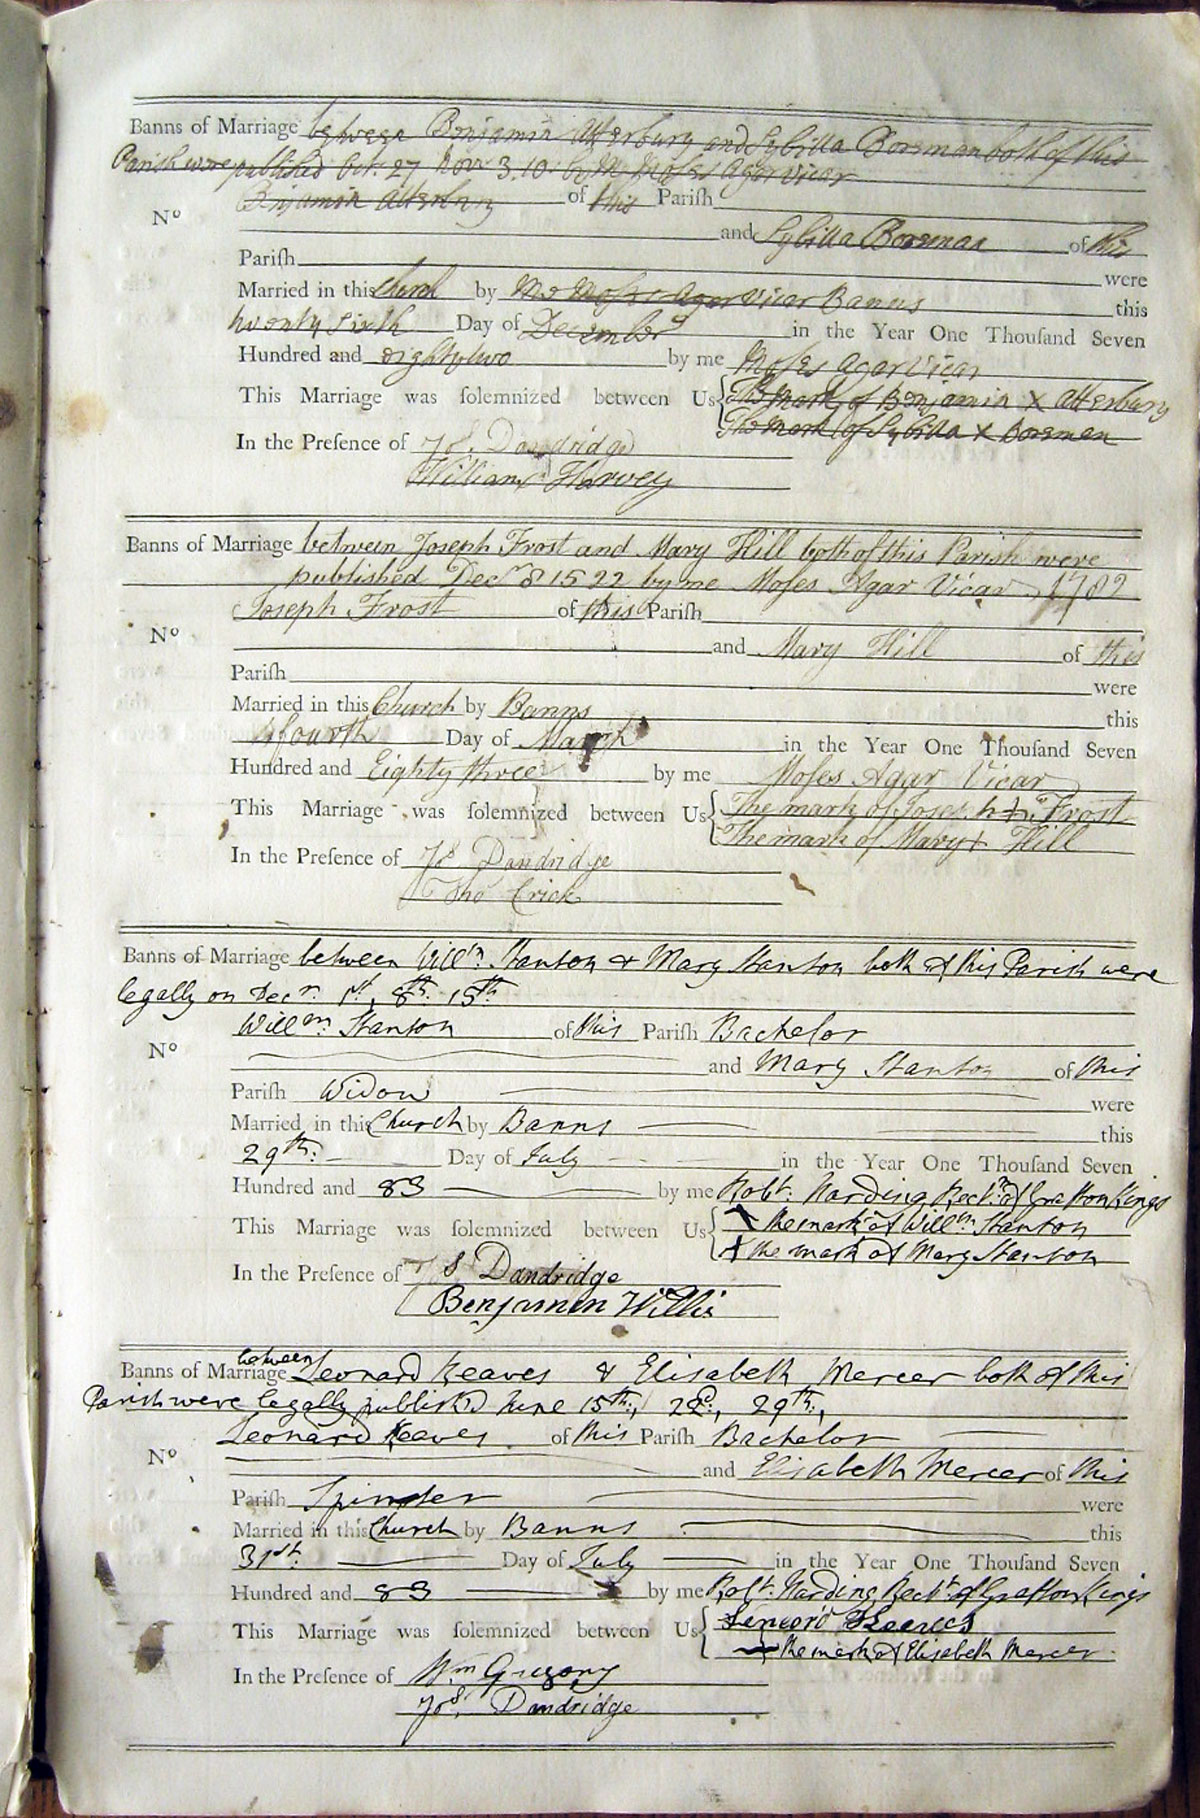 Banns of Marriage between Benjamin Atterbury and Sybilla Boreman both of this
Parish were published Oct. 27 Novr 3. 10. by Me Moſes Agar Vicar
Benjamin Atterbury of this Pariſh
Nº
and Sybilla Boreman of this
Pariſh were
Married in this Church by Me Moſes Agar Vicar Banns this
twenty sixth Day of December in the Year One Thouſand Seven
Hundred and eighty two by me Moſes Agar Vicar
This Marriage was ſolemnized between Us The mark of Benjamin X Atterbury
The mark of Sybilla X Boreman
In the Preſence of Jos. Dandridge
William Harvey
Banns of Marriage between Joseph Frost and Mary Hill both of this Parish were
published Decr 8 15 22 by me Moſes Agar Vicar 1782
Joseph Frost of this Pariſh
Nº
and Mary Hill of this
Pariſh were
Married in this Church by Banns this
fourth Day of March in the Year One Thouſand Seven
Hundred and Eighty three by me Moſes Agar Vicar
This Marriage was ſolemnized between Us The mark of Joseph + Frost
The mark of Mary + Hill
In the Preſence of Jos Dandridge
Tho Crick
Banns of Marriage between Willm. Stanton & Mary Stanton both of this Parish were
legally on Decr. 1st, 8th. 15th
Willm. Stanton of this Pariſh Bachelor
Nº
and Mary Stanton of this
Pariſh Widow were
Married in this Church by Banns this
29th: Day of July in the Year One Thouſand Seven
Hundred and 83 by me Robt. Harding Rectr. of Grafton Kings
This Marriage was ſolemnized between Us X the mark of Willm Stanton
X the mark of Mary Stanton
In the Preſence of Jos Dandridge
Benjamin Willis
between
Banns of Marriage Leonard Keaves & Elisabeth Mercer both of this
Parish were legally publish'd June 15th:, 22d:, 29th:,
Leonard Keaves of this Pariſh Bachelor
Nº
and Elisabeth Mercer of this
Pariſh Spinster were
Married in this Church by Banns this
31st. Day of July in the Year One Thouſand Seven
Hundred and 83 by me Robt. Harding Rectr. of Grafton Kings
This Marriage was ſolemnized between Us Keaves
X the mark of Elisabeth Mercer
In the Preſence of Wm Gregory
Jos. Dandridge